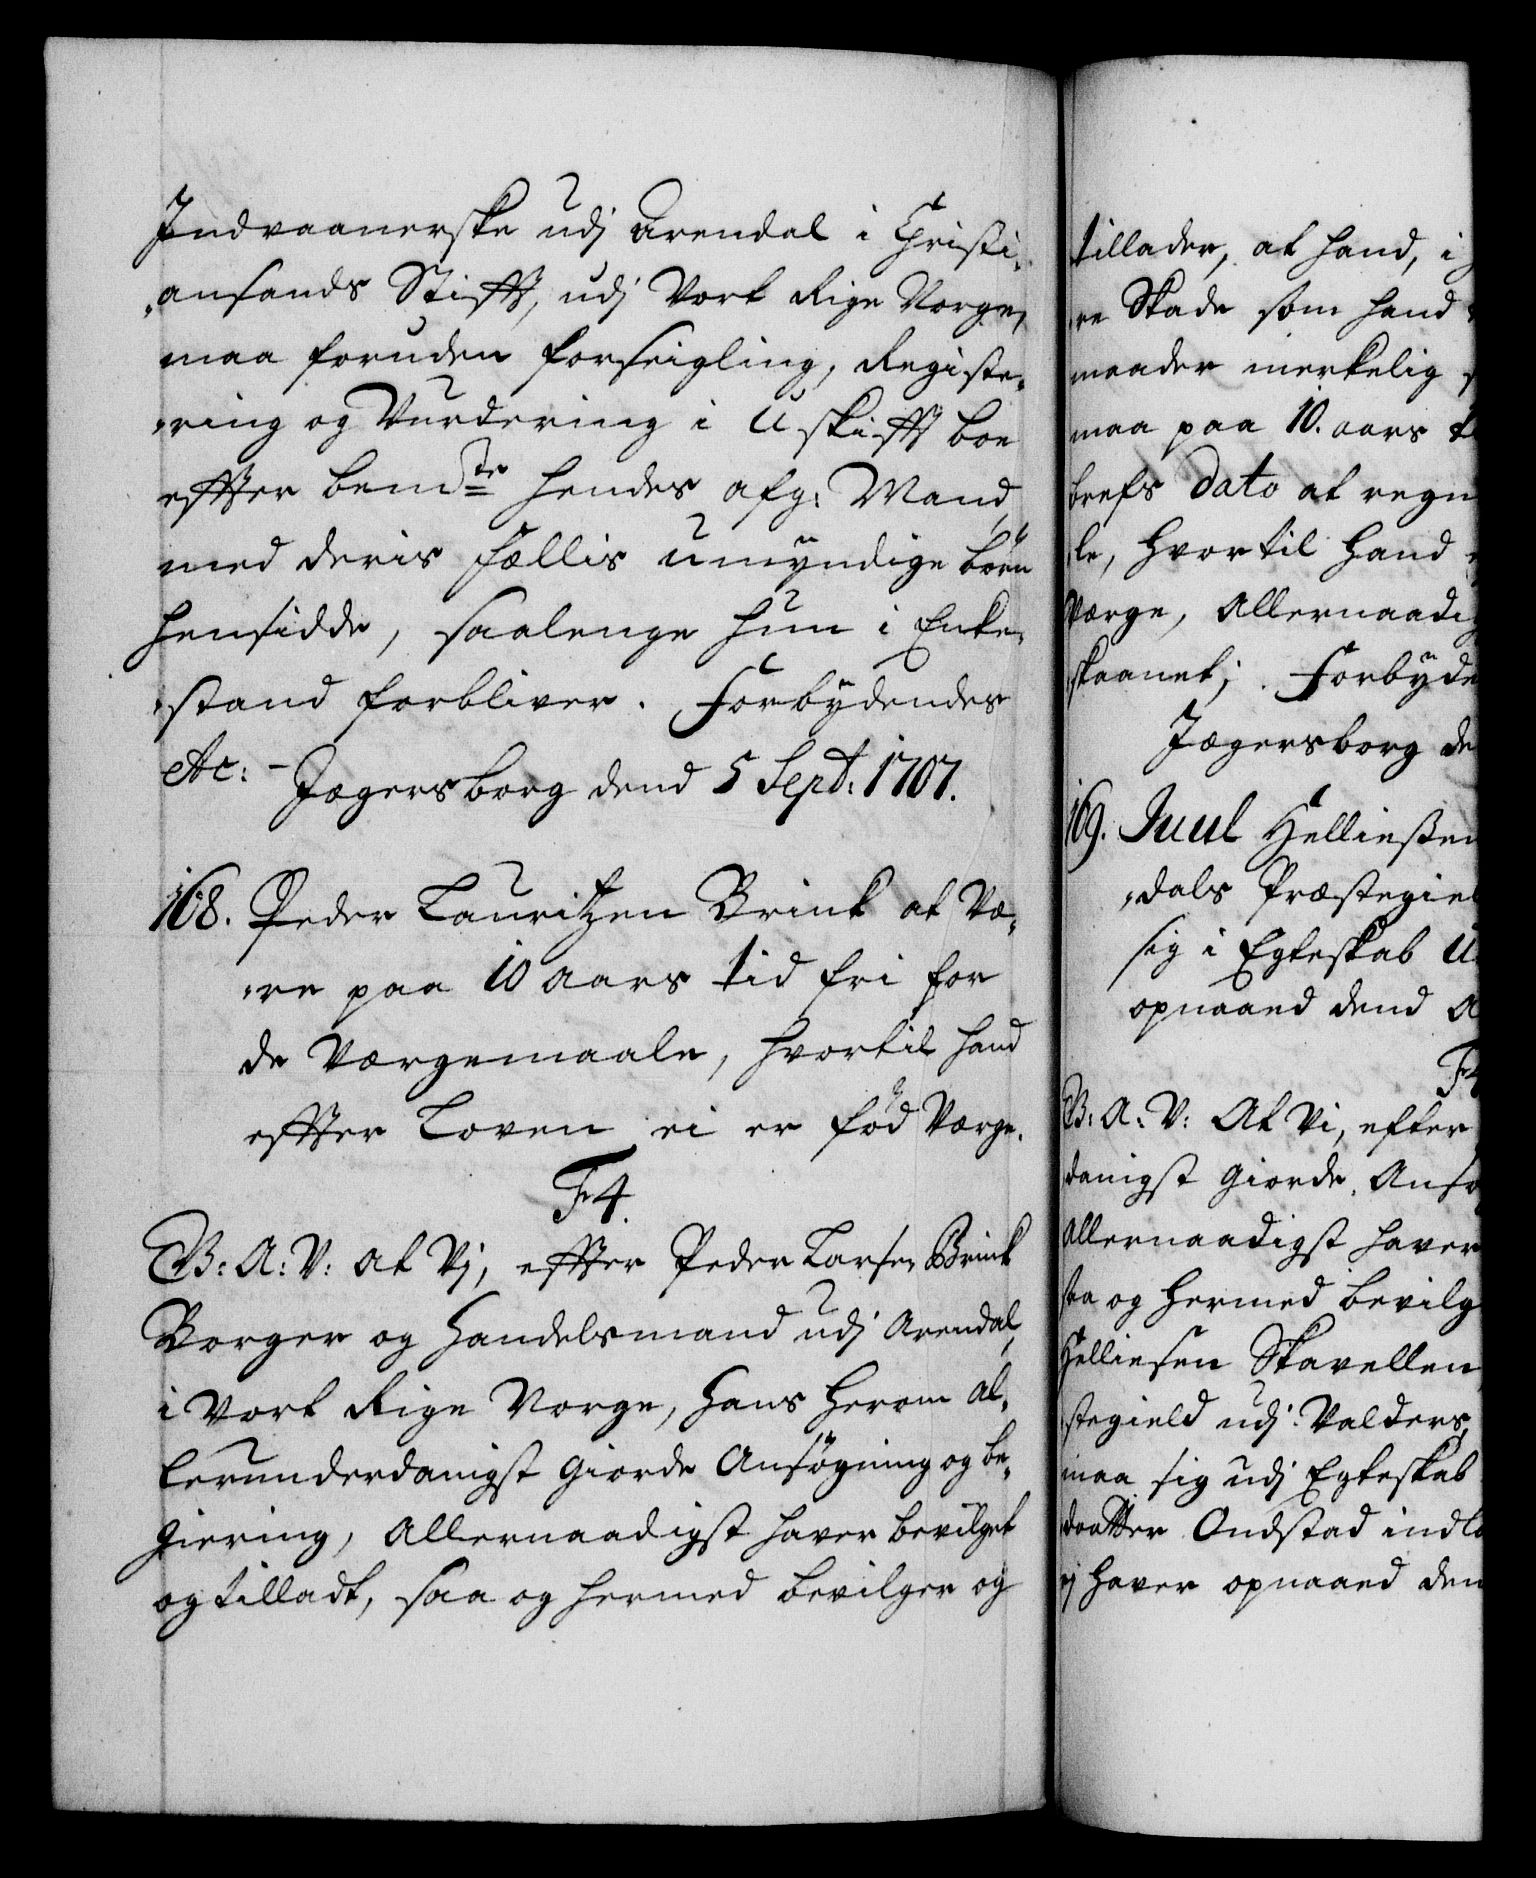 Indvaanerske udj Arendal i Christi-
ansands Stifft, udj Vort Rige Norge,
maa foruden forseigling, Registe-
ring og Vurdering i Uskifft boe
effter bemte hendes afg: Mand,
med deris fællis umÿndige børn
hensidde, saalenge hun i Enke-
stand forbliver. Forbÿdendes
etc: - Jægersborg dend 5 Sept: 1707.
168. Peder Lauritzen Brink at Væ-
re paa 10 aars tid fri for
de Værgemaale, hvortil hand
effter Loven ei er fød Værge.
F4.
B: A: V: at Vj, effter Peder Larsen Brink
Borger og Handelsmand udj Arendal,
i Vort Rige Norge, hans herom al-
lerunderdanigst giorde Ansøgning og be-
giering, Allernaadigst haver bevilget
og tilladt, saa og hermed bevilger og
tillader, at hand, i
re Skade som hand
maader merkelig
maa paa 10. aars
brefs Dato at regn
le, hvortil hand
Værge, Allernaadig
skaanet; Forbÿde
Jægersborg de
169. Juul Helliesen
dals Præstegiel
sig i Egteskab
opnaaed dend
F4
B: A: V: At Vi, efter
danigst giorde Ansø
Allernaadigst haver
saa og hermed bevilg
Helliesen Skavellen
stegield udj Valders,
maa sig udj Egteskab
daatter Ondstad indl
ej haver opnaaed den